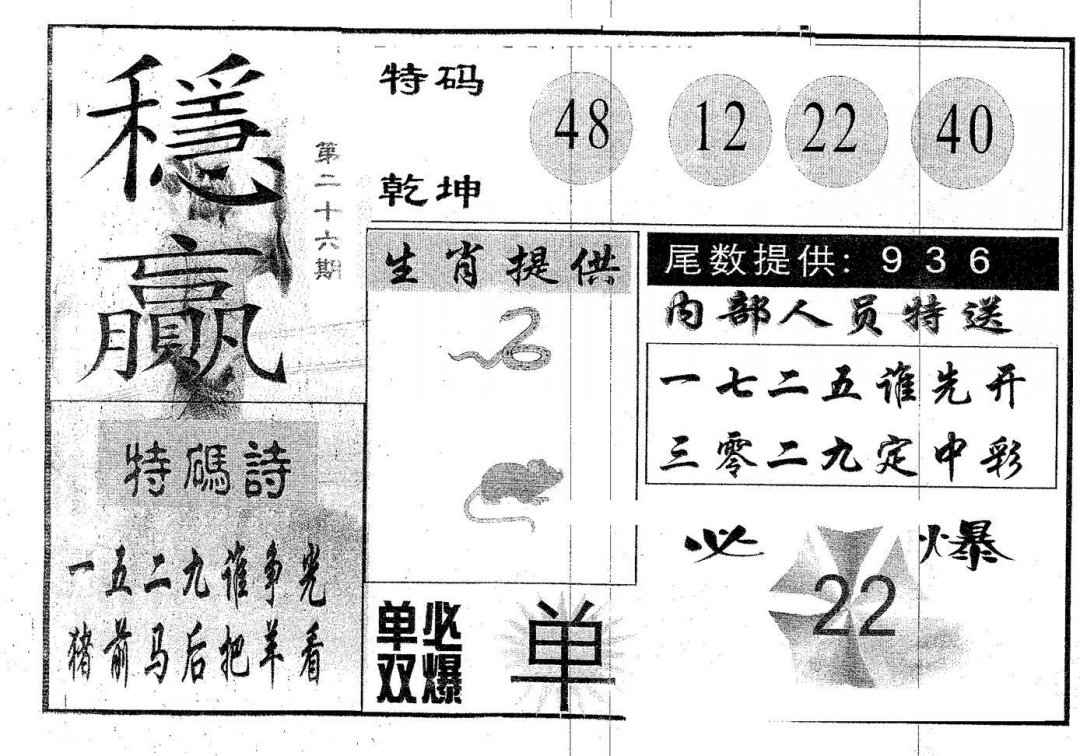 穩贏
第二十六期
特码
乾坤
48 12 22 40
生肖提供
尾数提供: 9 3 6
内部人员特送
一七二五谁先开
三零二九定中彩
特碼詩
一五二九谁争光
猪前马后把羊看
单双
必爆
单
必 22 爆